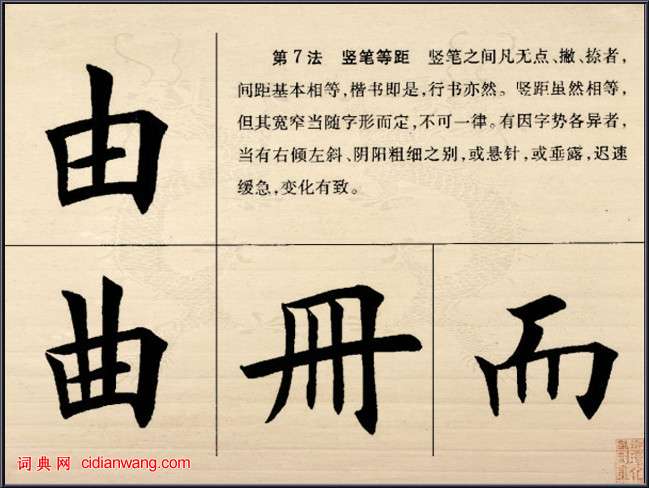 第7法 竖笔等距 竖笔之间凡无点、撇、捺者，
间距基本相等，楷书即是，行书亦然。竖距虽然相等，
但其宽窄当随字形而定，不可一律。有因字势各异者，
当有右倾左斜、阴阳粗细之别，或悬针，或垂露，迟速
缓急，变化有致。
由
曲 冊 而
词典网 cidianwang.com